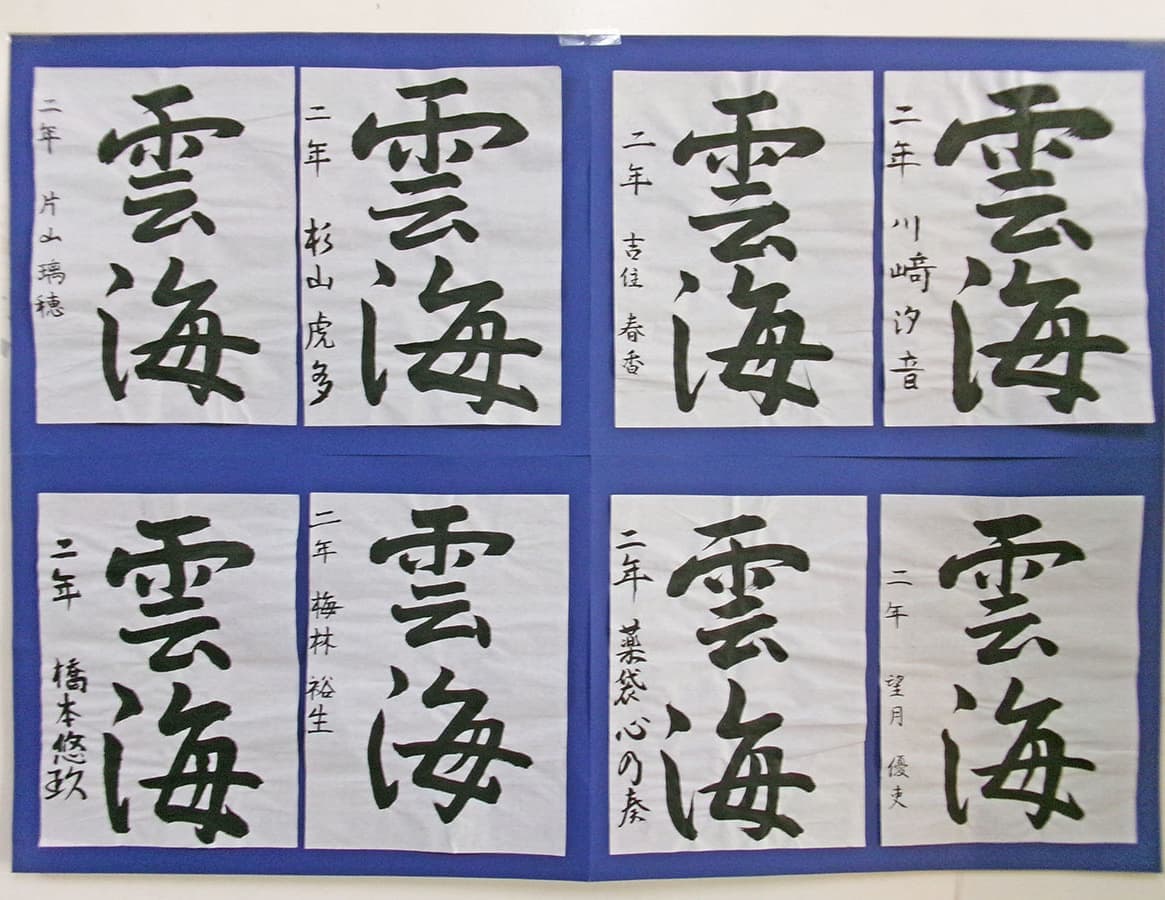 雲海
二年 川﨑汐音
雲海
二年 吉住春香
雲海
二年 杉山虎多
雲海
二年 片山璃穂
雲海
二年 望月優吏
雲海
二年 薬袋心の奏
雲海
二年 梅林裕生
雲海
二年 橋本悠玖